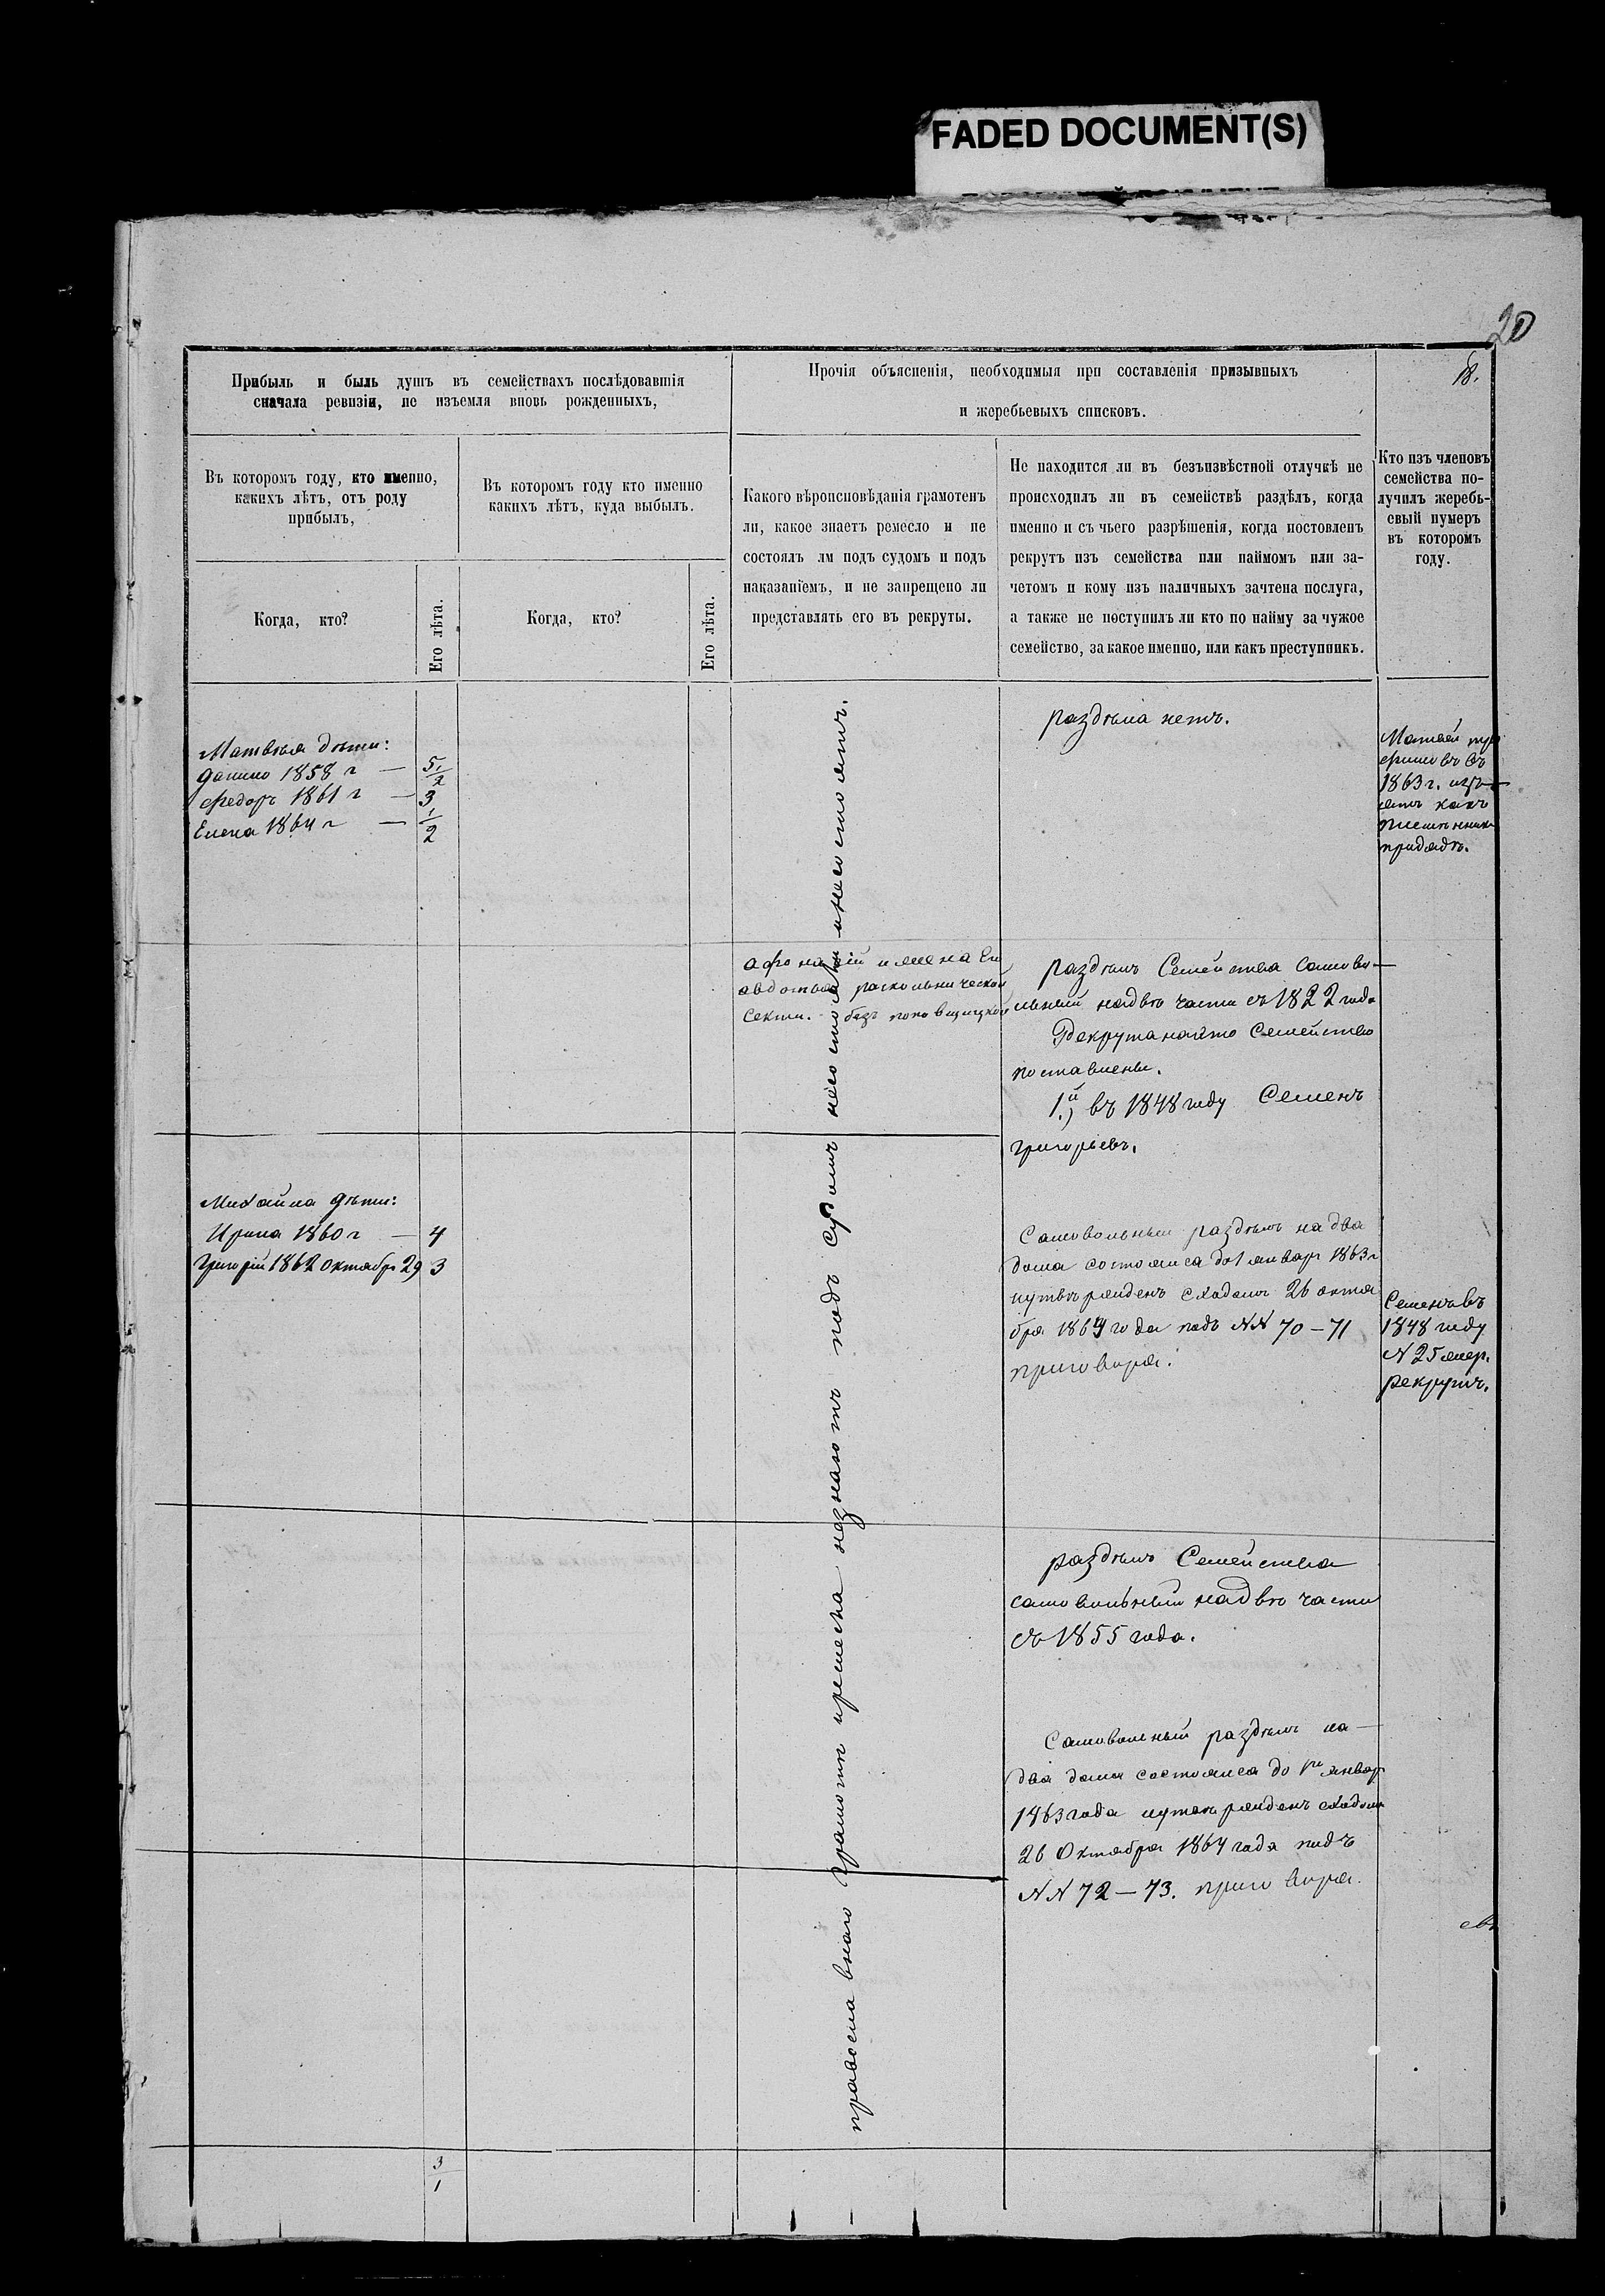 FADED DOCUMENT(S)
20
18.
Прибыль и быль душъ въ семействахъ послѣдовавшія
сначала ревизіи, не изъемля вновь рожденныхъ,
Прочія объясненія, необходимыя при составленія призывныхъ
и жеребьевыхъ списковъ.
Въ которомъ году, кто именно,
какихъ лѣтъ, отъ роду
прибылъ,
Въ которомъ году кто именно
какихъ лѣтъ, куда выбылъ.
Какого вѣроисповѣданія грамотенъ
ли, какое знаетъ ремесло и не
состоялъ лм подъ судомъ и подъ
наказаніемъ, и не запрещено ли
представлять его въ рекруты.
Не находится ли въ безъизвѣстной отлучкѣ не
происходилъ ли въ семействѣ раздѣлъ, когда
именно и съ чьего разрѣшенія, когда постовленъ
рекрутъ изъ семейства или наймомъ или за-
четомъ и кому изъ наличныхъ зачтена послуга,
а также не поступилъ ли кто по найму за чужое
семейство, за какое именно, или какъ преступникъ.
Кто изъ членовъ
семейства по-
лучилъ жеребь-
евый нумеръ
въ которомъ
году.
Когда, кто?
Его лѣта.
Когда, кто?
Его лѣта.
Матвѣя дѣти:
Данило 1858 г — 5 1/2
Федоръ 1861 г — 3
Елена 1864 г — 1/2
раздѣла нетъ.
Матвей
въ
1863 г.
какъ
племянникъ
православнаго грамоты иремесла незнаютъ подъ судомъ несостояли инесостоятъ.
Афонасій ижена Ег
авдотья раскольнической
секты. безъ поповщицкой
раздѣлъ Семейства самово-
льный надвѣ части съ 1822 года
Рекрута наэто Семейство
поставлены.
1.й) въ 1848 году Семенъ
Григорьевъ.
Михайла дѣти:
Ирина 1860 г — 4
Григорій 1862 Октябр 29 3
Самовольный раздѣлъ на два
дома состоялса до 1 январ 1863 г
иутвержденъ сходомъ 26 октя
бря 1864 года подъ NN 70–71
приговора.
Семенъ въ
1848 году
N 25
рекрутъ.
раздѣлъ Семейства
самовольный надвѣ части
съ 1855 года.
Самовольный раздѣлъ на-
два дома состоялса до 1го январ
1863 года иутвержденъ сходомъ
26 Октября 1864 года подъ
NN 72–73. приговора.
3
1